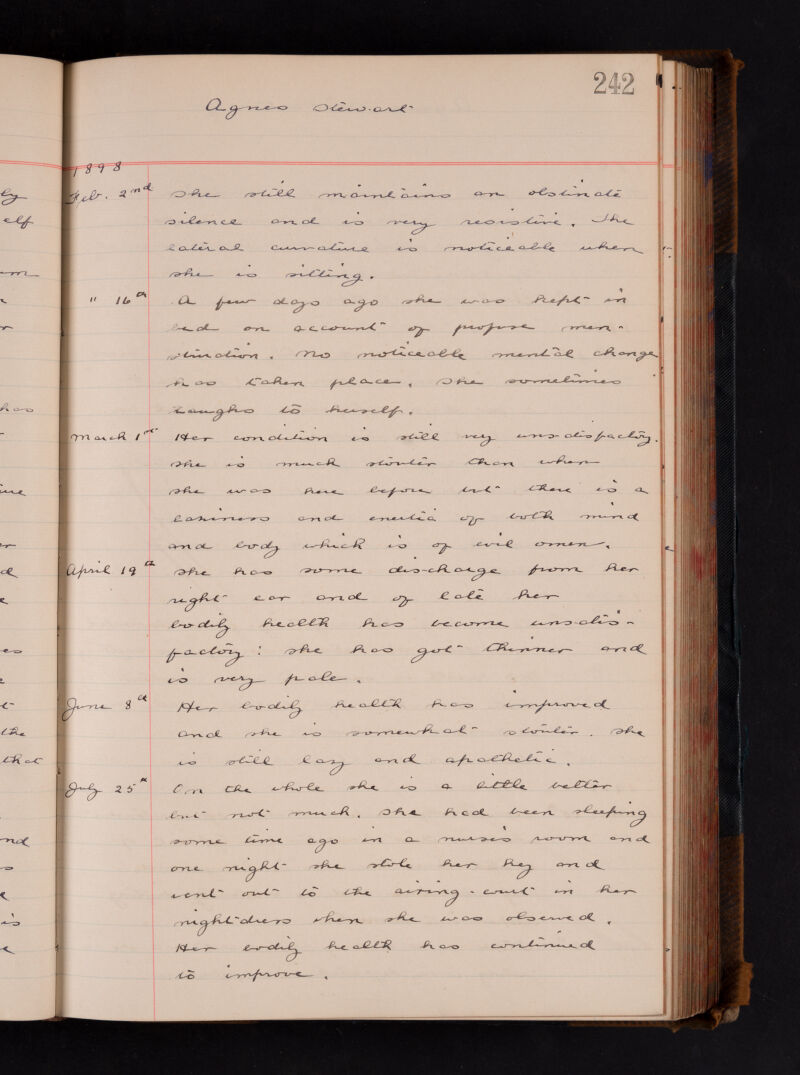 242
Agnes Stewart
1898
Feb. 2nd She still maintains an obstinate
silence and is very resistive. The
lateral curvature is noticeable when
she is sitting.
" 16th A few days ago she was kept in
bed on account of profuse men-
struation. No noticeable mental change
has taken place. She sometimes
laughs to herself.
March 1st Her condition is still very unsatisfactory.
She is much stouter than when
she was here before but there is a
laziness and inertia of both mind
and body which is of evil omen.
April 19th She has some discharge from her
right ear and of late her
bodily health has become unsatis-
factory: she has got thinner and
is very pale.
June 8th Her bodily health has improved
and she is somewhat stouter. She
is still lazy and apathetic.
July 25th On the whole she is a little better
but not much. She had been sleeping
some time ago in a nurse's room and
one night she stole her key and
went out to the airing-court in her
nightdress when she was observed.
Her bodily health has continued
to improve.